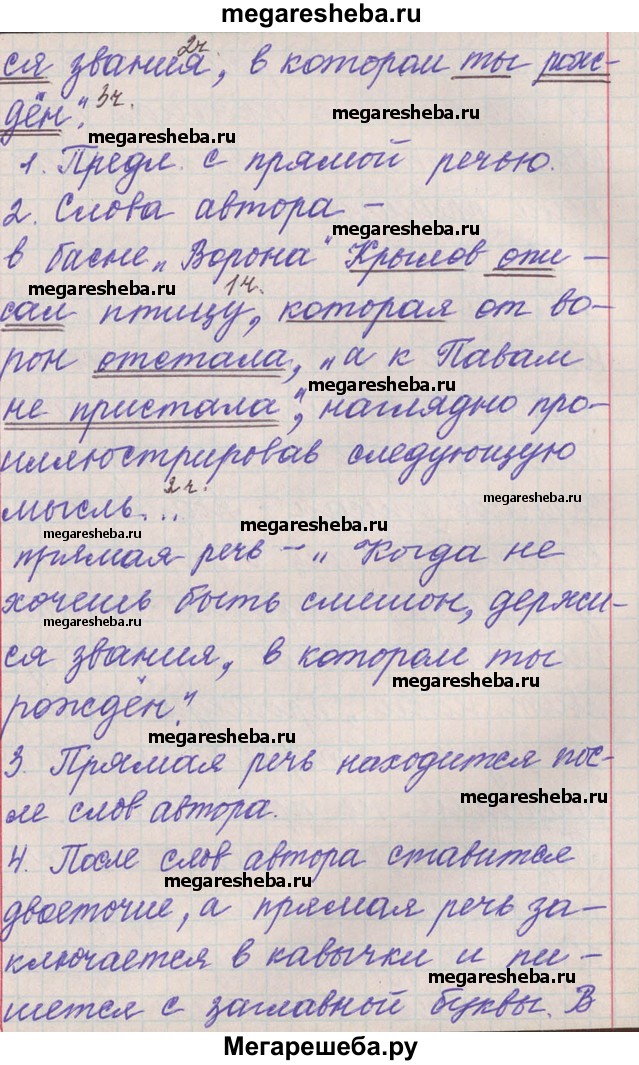 megaresheba.ru
ся звания, в котором ты рож-
2ч.
дён". 3ч.
megaresheba.ru
megaresheba.ru
1. Предл. с прямой речью.
2. Слова автора –
megaresheba.ru
в басне „Ворона" Крылов опи-
megaresheba.ru
1ч.
сал птицу, которая от во-
рон отстала, „а к Павам
megaresheba.ru
не пристала", наглядно про-
иллюстрировав следующую
мысль...
2ч.
megaresheba.ru
megaresheba.ru
megaresheba.ru
прямая речь – „Когда не
хочешь быть смешон, держи-
megaresheba.ru
ся звания, в котором ты
megaresheba.ru
рождён".
megaresheba.ru
3. Прямая речь находится пос-
ле слов автора.
megaresheba.ru
4. После слов автора ставится
megaresheba.ru
двоеточие, а прямая речь за-
ключается в кавычки и пи-
megaresheba.ru
шется с заглавной буквы. В
Мегарешеба.ру